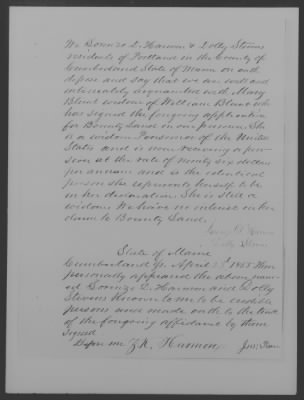 We Lorenzo D. Harmon & Dolly Stevens
residents of Portland in the County of
Cumberland State of Maine on oath
depose and say that we are well and
intimately acquainted with Mary
Blunt widow of William Blunt who
has signed the foregoing application
for Bounty Land in our presence. She
is a widow Pensioner of the United
States and is now receiving a pen-
sion at the rate of ninety six dollars
per annum and is the identical
person she represents herself to be
in her declaration. She is still a
widow. We have no interest in her
claim to Bounty Land.
Dolly Stevens
State of Maine
Cumberland ss April 1855 Then
personally appeared the above nam-
ed Lorenzo D. Harmon and Dolly
Stevens known to me to be credible
persons and made oath to the truth
of the foregoing affidavit by them
signed
Before me Z. K. Harmon Jus: Peace